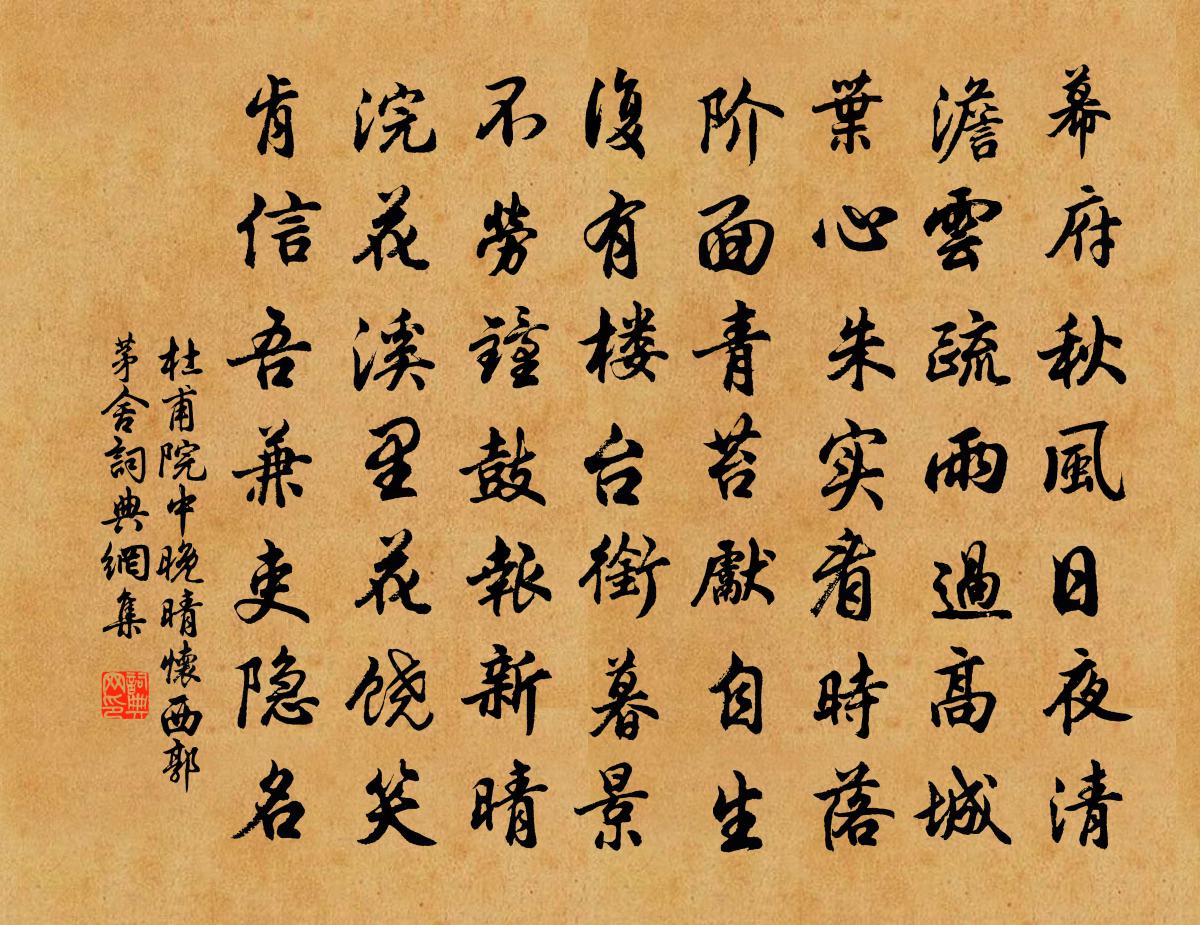 幕府秋風日夜清
澹雲疏雨過高城
葉心朱实看時落
阶面青苔獻自生
復有楼台銜暮景
不勞鐘鼓報新晴
浣花溪里花饶笑
肯信吾兼吏隐名
杜甫院中晚晴懷西郭
茅舍詞典網集
詞典网印